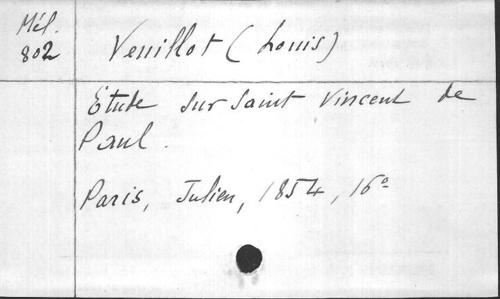 Mél.
802
Veuillot (Louis)
Etude sur Saint Vincent de
Paul.
Paris, Julien, 1854, 16º